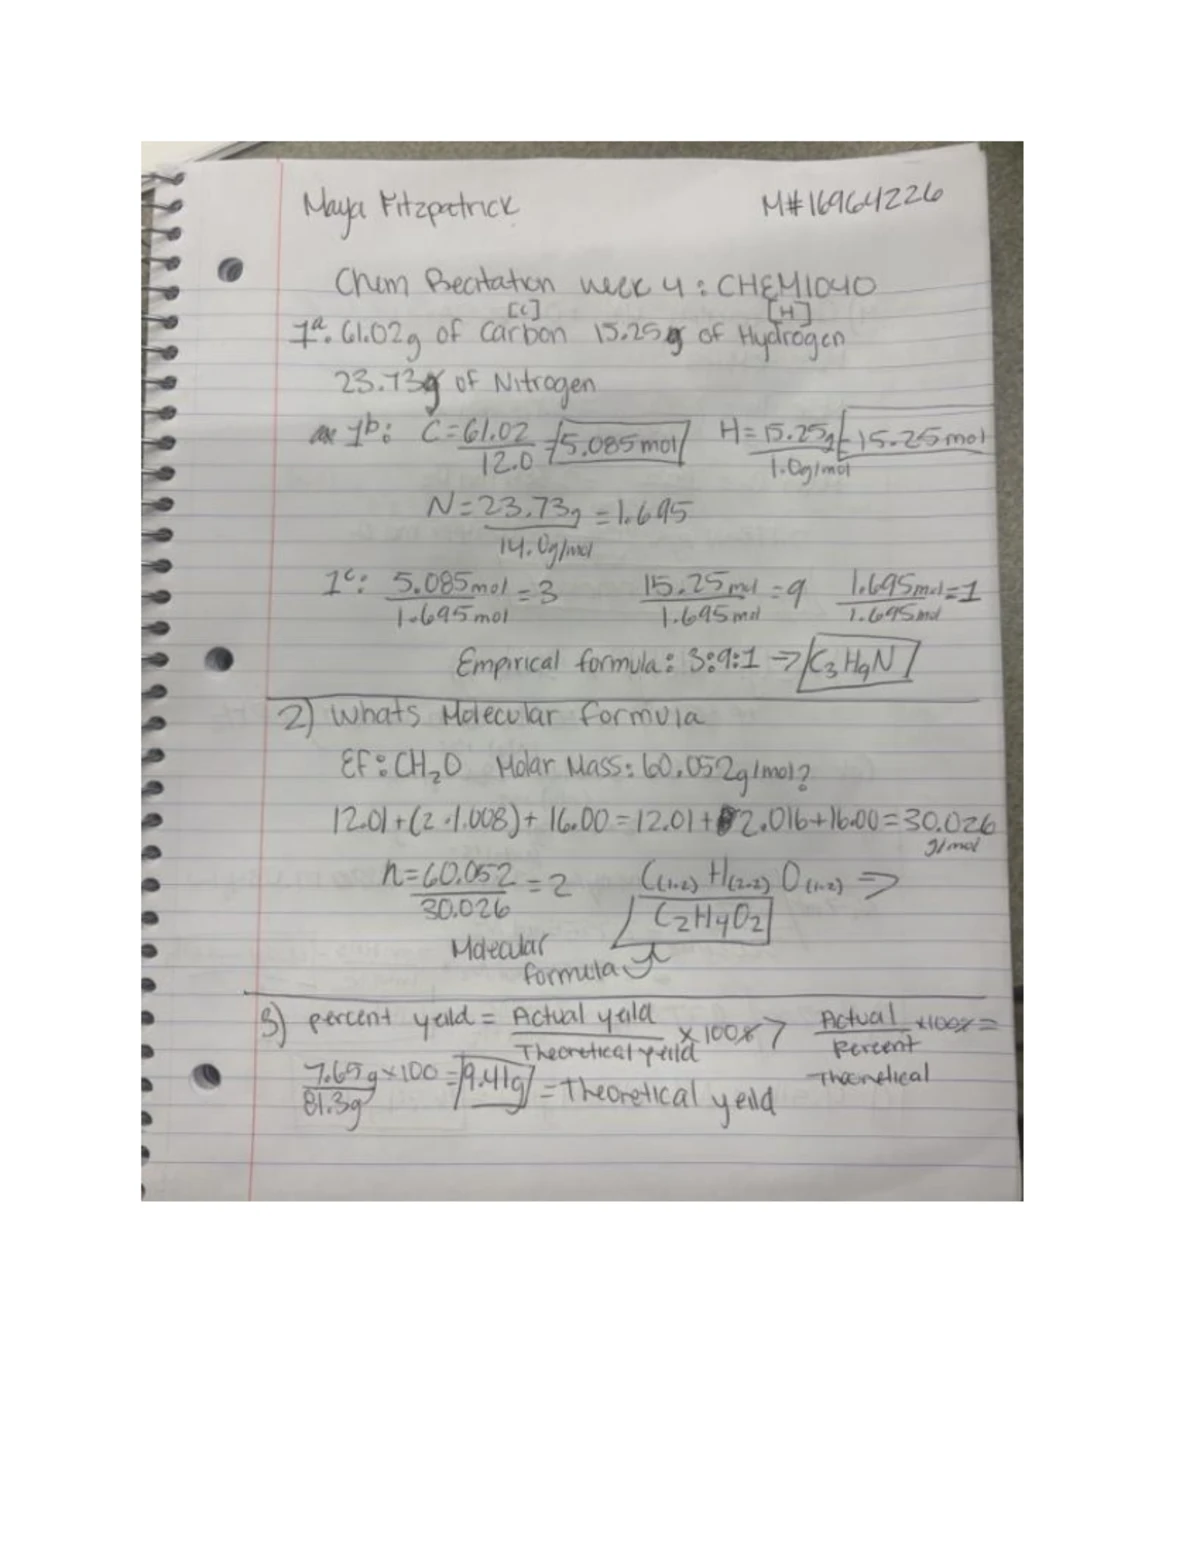 Maya Fitzpatrick M#16964226
Chem Recitation week 4: CHEM1040
[C] [H]
1a. 61.02g of Carbon 15.25g of Hydrogen
23.73g of Nitrogen
1b: C=61.02/12.0 = 5.085mol H=15.25g/1.0g/mol = 15.25mol
N=23.73g/14.0g/mol = 1.695
1c: 5.085mol/1.695mol = 3 15.25mol/1.695mol = 9 1.695mol/1.695mol = 1
Empirical formula: 3:9:1 → C3H9N
2) Whats Molecular formula
EF: CH2O Molar Mass: 60.052g/mol?
12.01+(2·1.008)+16.00=12.01+2.016+16.00=30.026 g/mol
n=60.052/30.026 = 2 C(1·2) H(2·2) O(1·2) ⇒
C2H4O2
Molecular
formula
3) percent yeild = Actual yeild/Theoretical yeild x100% > Actual/Percent x100% =
7.65g/81.3g x100 = 9.41g = Theoretical yeild Theoretical